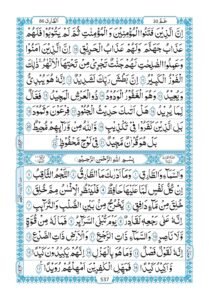 الطارق ٨٦
عم ٣٠
إِنَّ الَّذِينَ فَتَنُوا الْمُؤْمِنِينَ وَالْمُؤْمِنٰتِ ثُمَّ لَمْ يَتُوبُوا فَلَهُمْ
عَذَابُ جَهَنَّمَ وَلَهُمْ عَذَابُ الْحَرِيقِ ۝ إِنَّ الَّذِينَ اٰمَنُوا
وَعَمِلُوا الصّٰلِحٰتِ لَهُمْ جَنّٰتٌ تَجْرِي مِنْ تَحْتِهَا الْأَنْهٰرُ
ذٰلِكَ الْفَوْزُ الْكَبِيرُ ۝ إِنَّ بَطْشَ رَبِّكَ لَشَدِيدٌ ۝ إِنَّهُ هُوَ يُبْدِئُ
وَيُعِيدُ ۝ وَهُوَ الْغَفُورُ الْوَدُودُ ۝ ذُو الْعَرْشِ الْمَجِيدُ ۝ فَعَّالٌ
لِمَا يُرِيدُ ۝ هَلْ أَتٰكَ حَدِيثُ الْجُنُودِ ۝ فِرْعَوْنَ وَثَمُودَ ۝
بَلِ الَّذِينَ كَفَرُوا فِي تَكْذِيبٍ ۝ وَاللّٰهُ مِنْ وَرَائِهِمْ مُحِيطٌ ۝
بَلْ هُوَ قُرْاٰنٌ مَجِيدٌ ۝ فِي لَوْحٍ مَحْفُوظٍ ۝
بِسْمِ اللّٰهِ الرَّحْمٰنِ الرَّحِيمِ
وَالسَّمَاءِ وَالطَّارِقِ ۝ وَمَا أَدْرٰكَ مَا الطَّارِقُ ۝ النَّجْمُ الثَّاقِبُ ۝
إِنْ كُلُّ نَفْسٍ لَمَّا عَلَيْهَا حَافِظٌ ۝ فَلْيَنْظُرِ الْإِنْسَانُ مِمَّ خُلِقَ ۝
خُلِقَ مِنْ مَاءٍ دَافِقٍ ۝ يَخْرُجُ مِنْ بَيْنِ الصُّلْبِ وَالتَّرَائِبِ ۝
إِنَّهُ عَلٰى رَجْعِهِ لَقَادِرٌ ۝ يَوْمَ تُبْلَى السَّرَائِرُ ۝ فَمَا لَهُ مِنْ قُوَّةٍ
وَلَا نَاصِرٍ ۝ وَالسَّمَاءِ ذَاتِ الرَّجْعِ ۝ وَالْأَرْضِ ذَاتِ الصَّدْعِ ۝
إِنَّهُ لَقَوْلٌ فَصْلٌ ۝ وَمَا هُوَ بِالْهَزْلِ ۝ إِنَّهُمْ يَكِيدُونَ كَيْدًا ۝
وَأَكِيدُ كَيْدًا ۝ فَمَهِّلِ الْكٰفِرِينَ أَمْهِلْهُمْ رُوَيْدًا ۝
537